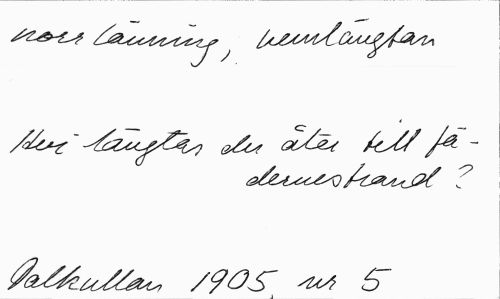 norrlänning, hemlängtan
Hvi längtar du åter till fä-
dernestrand?
Dalkullan 1905, nr 5